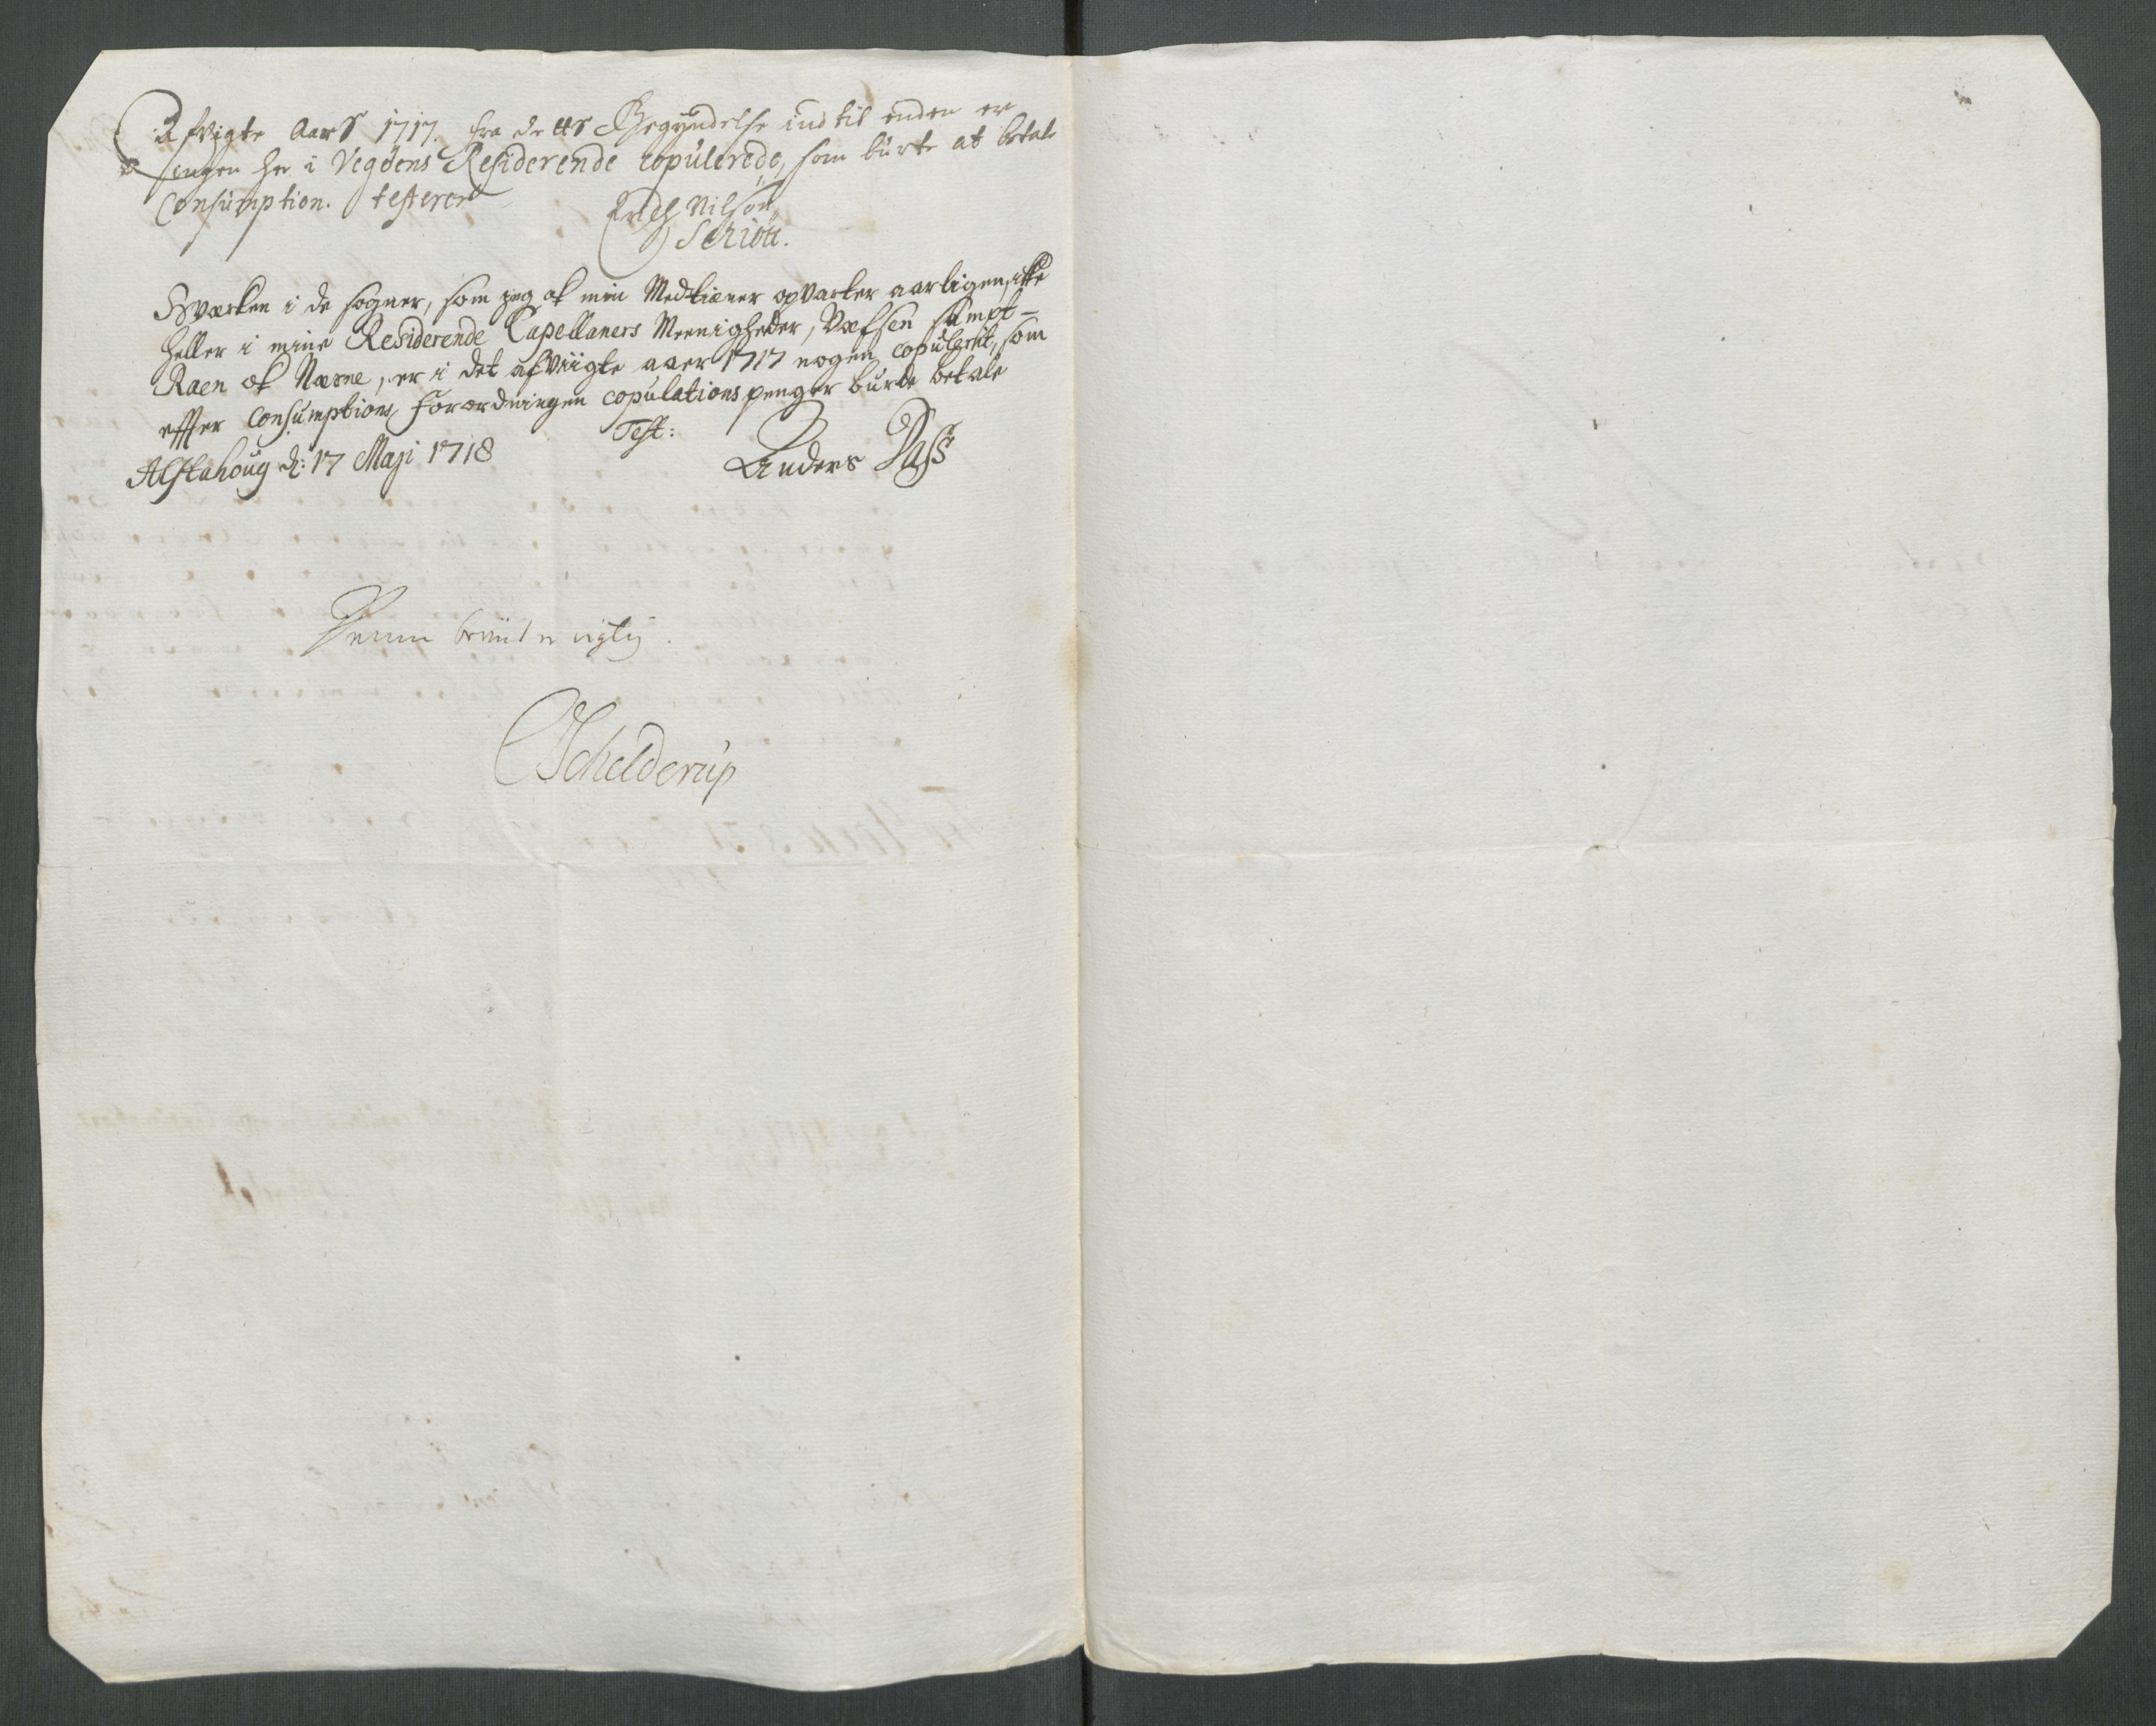 Afvigte Aars 1717 fra detts Begyndelse ind til enden er
ingen her i Vegöens Residerende copulerede, som burte at betale
Consumption. testerer
Erich Nilsön
Schiött.
Hværken i de sogner, som jeg ok min Medtiener opvarter aarligen, ikke
heller i mine Residerende Capellaners Meenigheder, Vefsen sampt
Raen ok Næsne, er i det afviigte aaer 1717 nogen copulerit, som
effter Consumptions forordningen copulations penger burde betale
Test:
Alstahoug d: 17 Maji 1718
Anders Dass
Denne er rigtig.
Schelderup